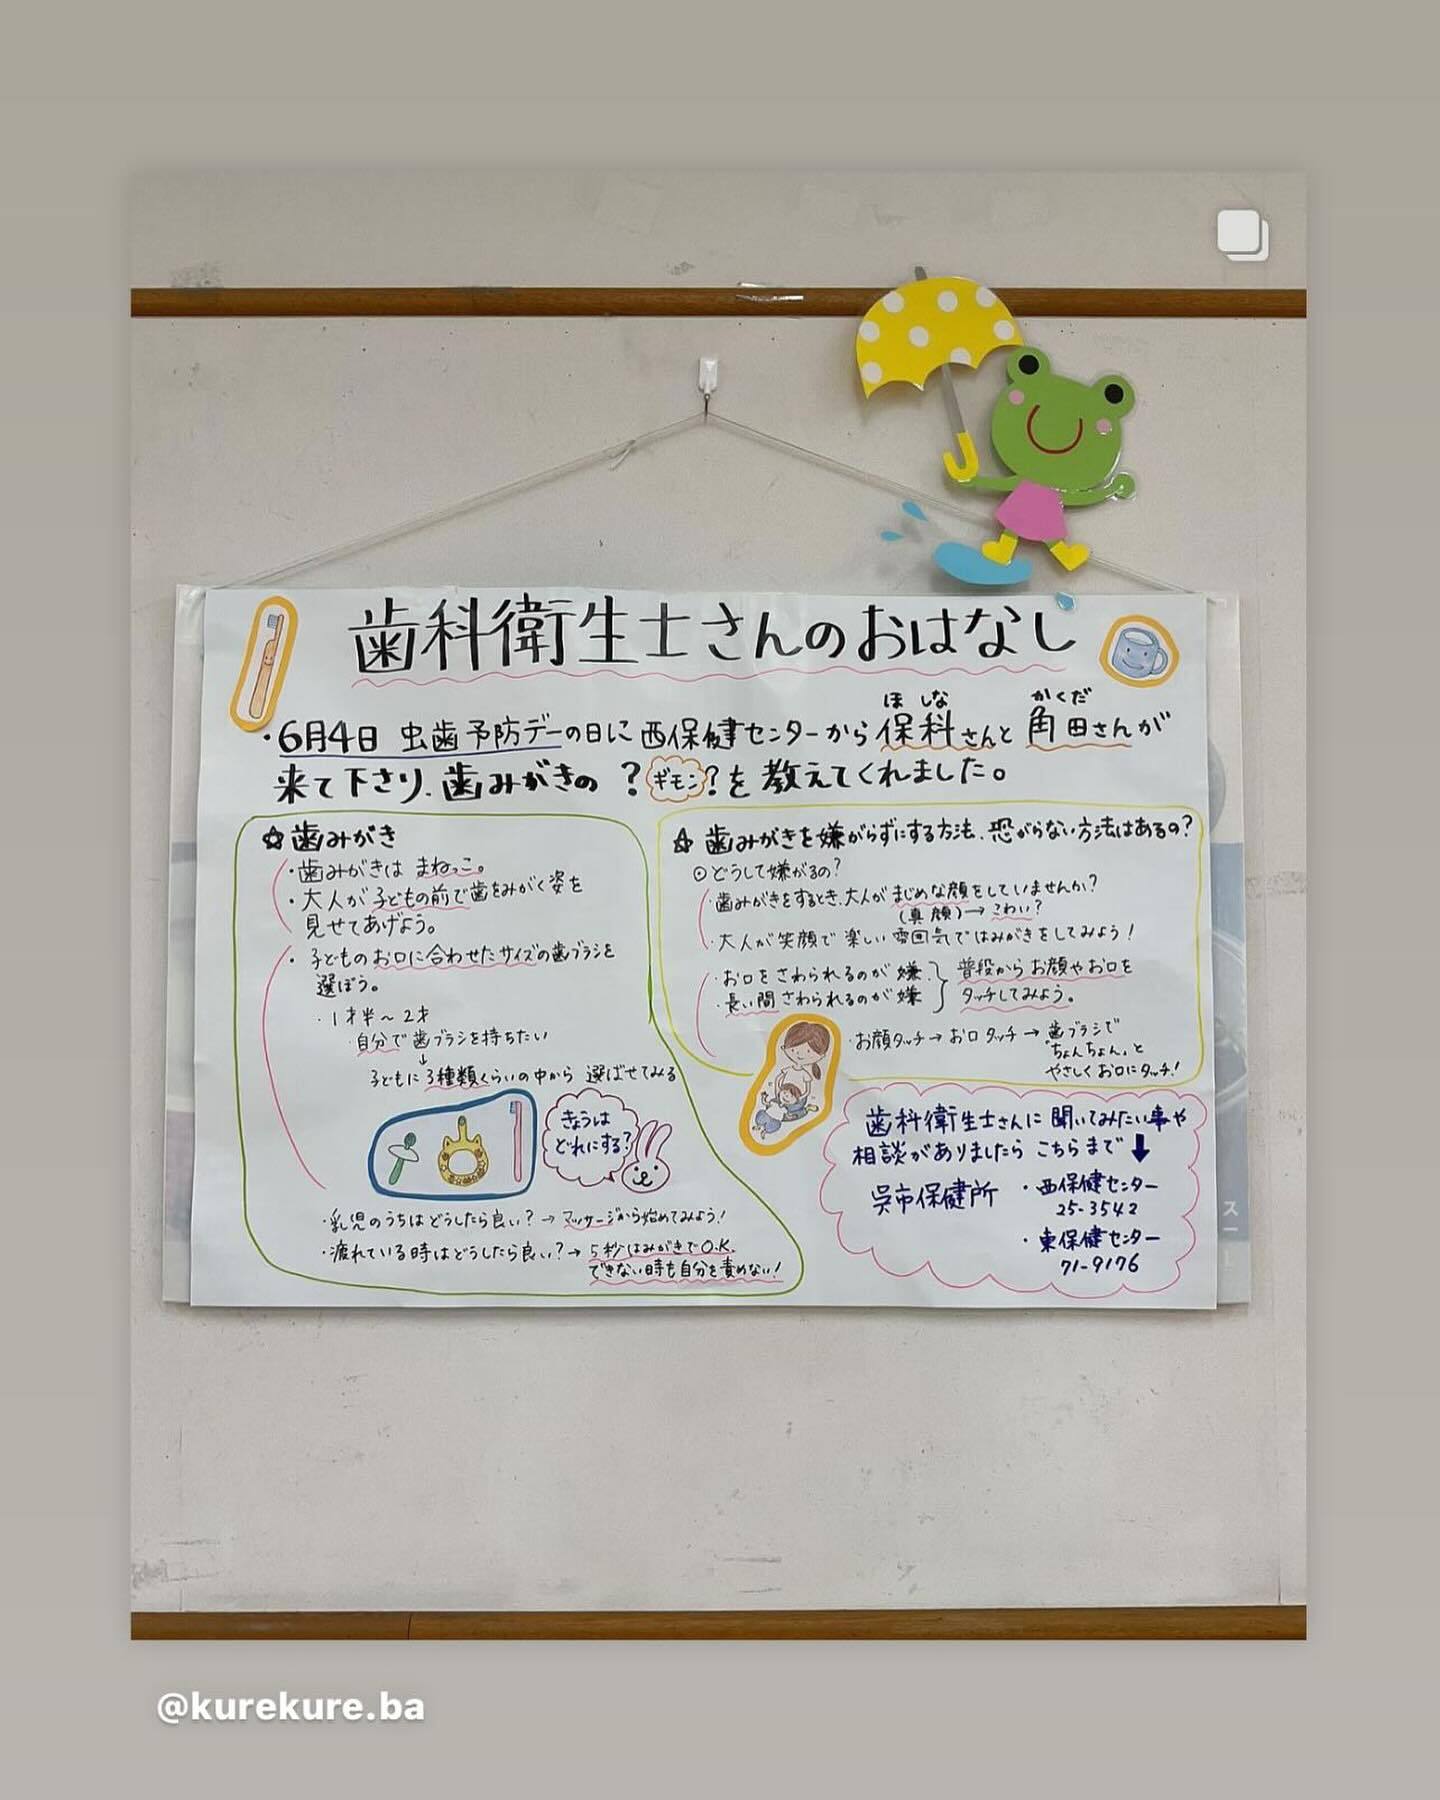 歯科衛生士さんのおはなし
・6月4日 虫歯予防デーの日に西保健センターから保科さんと角田さんが
ほしな かくだ
来て下さり、歯みがきの ?ギモン?を教えてくれました。
☆歯みがき
・歯みがきは まねっこ。
・大人が子どもの前で歯をみがく姿を
見せてあげよう。
・子どものお口に合わせたサイズの歯ブラシを
選ぼう。
・1才半～2才
自分で歯ブラシを持ちたい
↓
子どもに3種類くらいの中から 選ばせてみる
きょうは
どれにする?
・乳児のうちはどうしたら良い?→マッサージから始めてみよう!
・疲れている時はどうしたら良い?→5秒はみがきでO.K.
できない時も自分を責めない!
☆歯みがきを嫌がらずにする方法、恐がらない方法はあるの?
◎どうして嫌がるの?
・歯みがきをするとき、大人がまじめな顔をしていませんか?
(真顔)→こわい?
・大人が笑顔で楽しい雰囲気ではみがきをしてみよう!
・お口をさわられるのが嫌
・長い間さわられるのが嫌
普段からお顔やお口を
タッチしてみよう。
・お顔タッチ→お口タッチ→歯ブラシで
"ちょんちょん"と
やさしくお口にタッチ!
歯科衛生士さんに聞いてみたい事や
相談がありましたら こちらまで⬇
呉市保健所 ・西保健センター
25-3542
・東保健センター
71-9176
@kurekure.ba